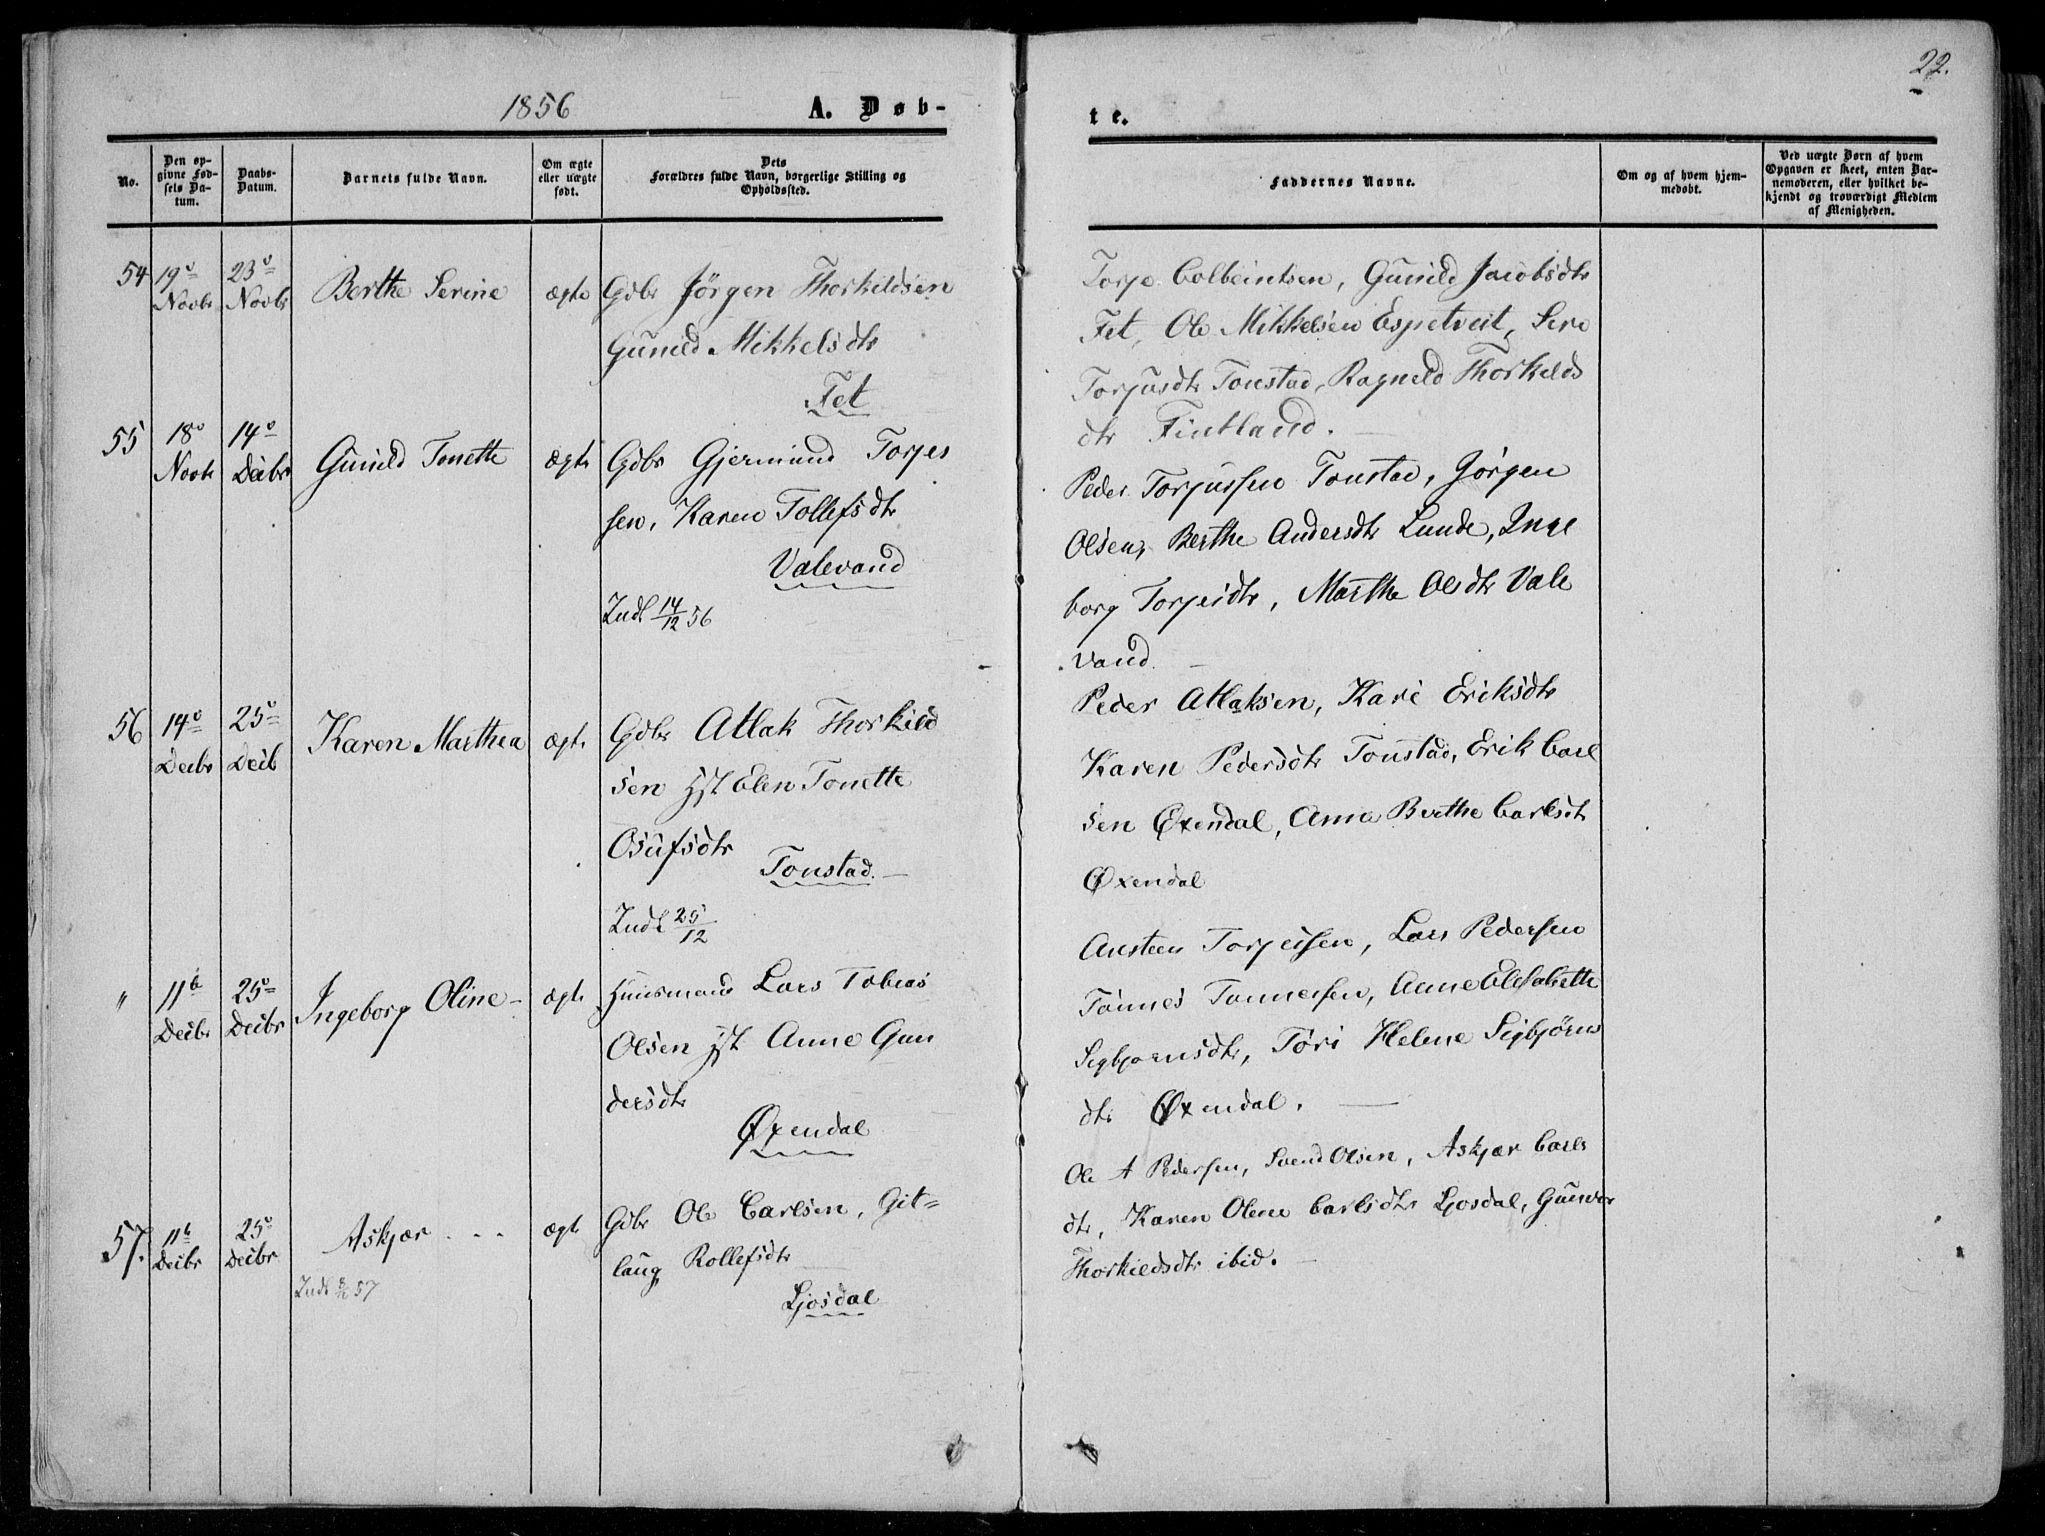 22.
1856
A. Døb-
te.
No.
Den op-
givne Fød-
sels Da-
tum.
Daabs-
Datum.
Barnets fulde Navn.
Om ægte
eller uægte
født.
Dets
Forældres fulde Navn, borgerlige Stilling og
Opholdssted.
Faddernes Navne.
Om og af hvem hjem-
medøbt.
Ved uægte Børn af hvem
Opgaven er skeet, enten Bar-
nemoderen, eller hvilket be-
kjendt og troværdigt Medlem
af Menigheden.
54
19de
Novbr
23de
Novbr
Berthe Serine
ægte
Gdbr Jörgen Thorkildsen
Gunild Mikkelsdtr
Fet
Torje Colbeintsen, Gunild Jacobsdtr
Fet, Ole Mikkelsen Espetveit, Sere
Torjusdtr Tonstad, Ragneld Thorkilds
dtr Fintland.
55
18de
Novbr
14de
Decbr
Gunild Tonette
ægte
Gdbr Gjermund Torjes
sen, Karen Tollefsdtr
Valevand
Indl 14/12 56
Peder Torjussen Tonstad, Jörgen
Olsen, Berthe Andersdtr Lunde, Inge
borg Torjesdtr, Marthe Olsdtr Vale
vand.
56
14de
Decbr
25de
Decb
Karen Marthea
ægte
Gdbr Atlak Thorkild
sen Hst Elen Tonette
Osufsdtr
Tonstad.
Indl 25/12
Peder Atlaksen, Kari Eriksdtr
Karen Pedersdtr Tonstad, Erik Carl
sen Øxendal, Anna Berthe Carlsdtr
Øxendal
"
11te
Decbr
25de
Decbr
Ingeborg Oline
ægte
Huusmand Lars Tobias
Olsen Hst Anne Gun
dersdtr
Øxendal
Austeen Torjeisen, Lars Pedersen
Tönnes Tönnessen, Anne Elisabette
Sigbjørnsdtr, Töri Helene Sigbjørns
dtr Øxendal.
57.
11te
Decbr
25de
Decbr
Askjær
ægte
Gdbr Ole Carlsen, Git=
laug Rollefsdtr
Ljosdal
Indl 57
Ole A Pedersen, Svend Olsen, Askjær Carls
dtr, Karen Olene Carlsdtr Ljosdal, Gunvor
Thorkildsdtr ibid.